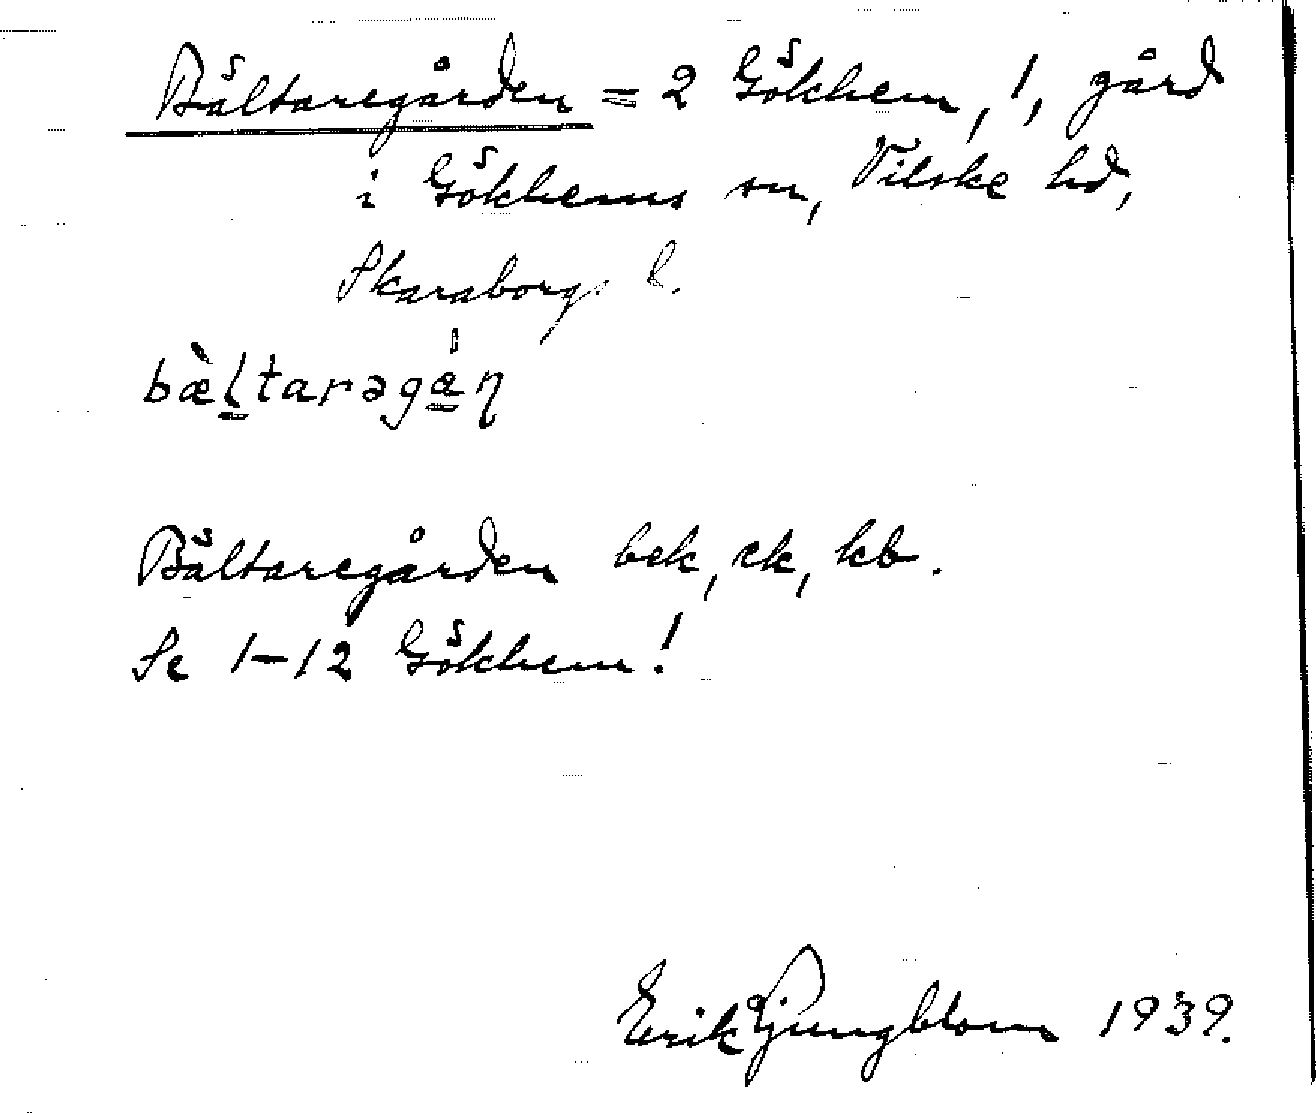 Bältaregården = 2 Gökhem, 1, gård
i Gökhems sn, Vilske hd,
Skaraborgs l.
bæ̀ltaragán
Bältaregården bek, ek, kb.
Se 1-12 Gökhem!
Erik Ljungblom 1939.